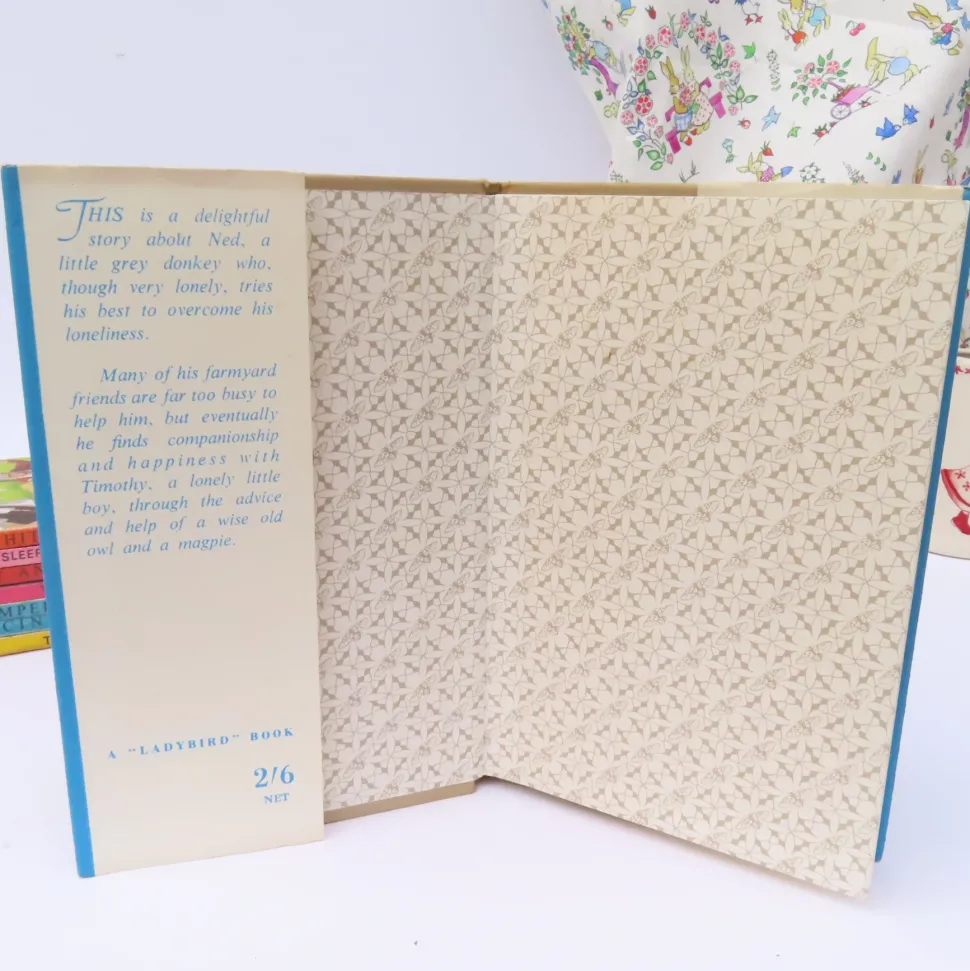 THIS is a delightful
story about Ned, a
little grey donkey who,
though very lonely, tries
his best to overcome his
loneliness.
Many of his farmyard
friends are far too busy to
help him, but eventually
he finds companionship
and happiness with
Timothy, a lonely little
boy, through the advice
and help of a wise old
owl and a magpie.
A "LADYBIRD" BOOK
2/6
NET
HI
SLEEP
AN
MPE
CIN
T